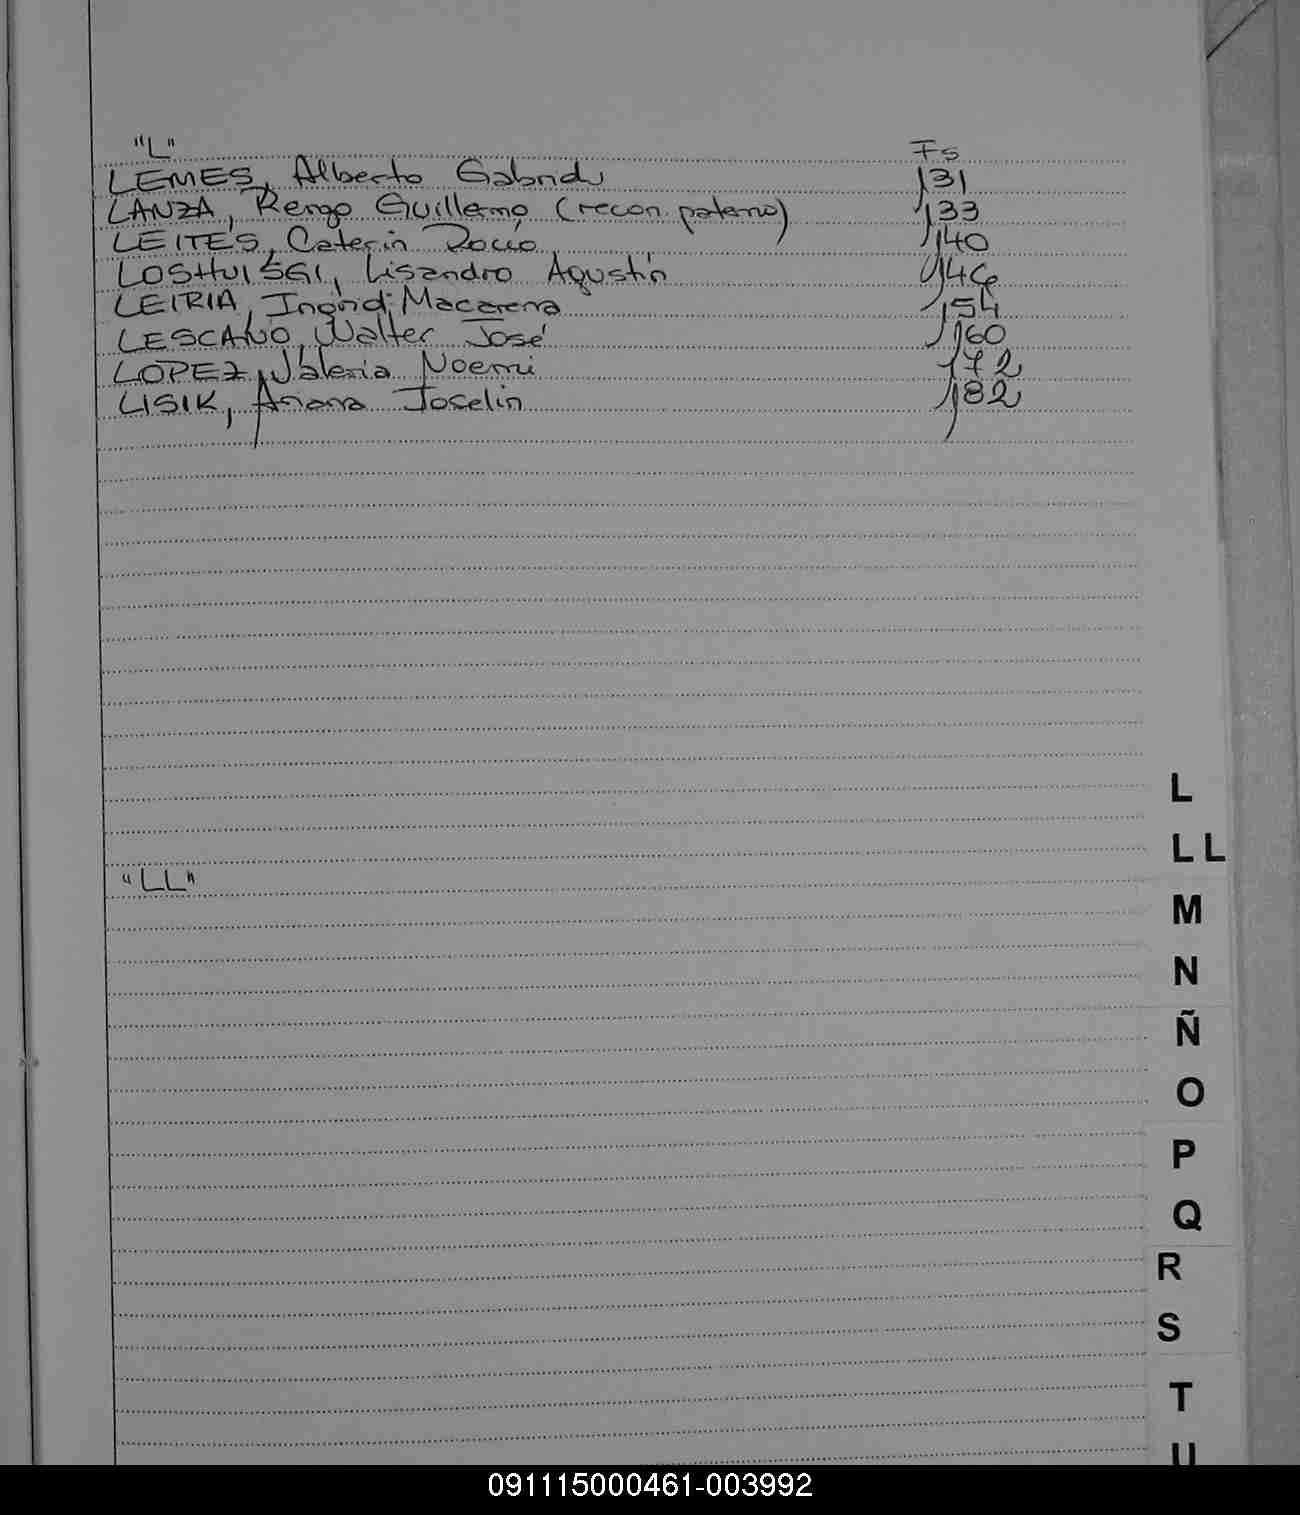 "L" Fs
LEMES, Alberto Gabriel 131
LANZA, Rengo Guillermo (recon. paterno) 133
LEITES, Caterin Rocío 140
Lisandro Agustín 146
LEIRIA, Ingrid Macarena 154
LESCANO, Walter José 160
LOPEZ, Valeria Noemi 172
LISIK, Ariana Joselin 182
L
LL
"LL"
M
N
Ñ
O
P
Q
R
S
T
U
091115000461-003992